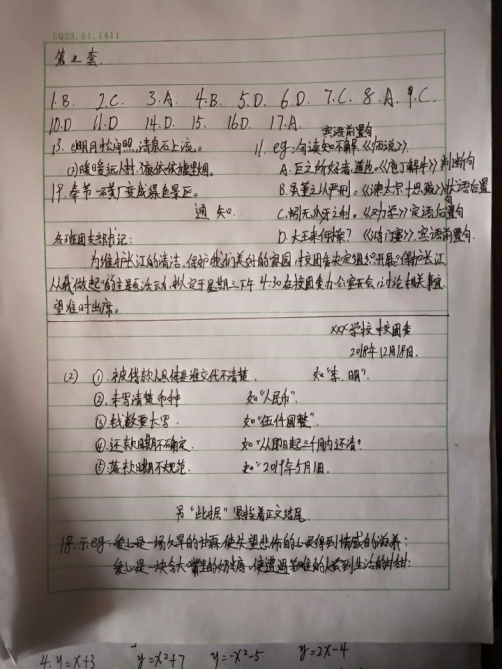 CQ23.51.1411
第2套
1.B. 2.C. 3.A. 4.B 5.D. 6.D. 7.C. 8.A. 9.C.
10.D 11.D 14.D. 15. 16D. 17.A.
宾语前置句
13. (1)明月松间照,清泉石上流。 11. eg:句读之不解《师说》
(2)暧暧远人村,依依墟里烟。 A.臣之所好者道也.《庖丁解牛》判断句
19.奉节 变成绿色景区。 B.虽董之以严刑.《谏太宗十思疏》状语后置
通知 C.蚓无爪牙之利.《劝学》定语后置句
各班团支部书记: D.大王来何操?《鸿门宴》.宾语前置句.
为维护长江的清洁,保护我们美好的家园,校团委决定组织开展"保护长江
从我做起"的主题活动,拟定于星期三下午4:30在校团委办公室开会,讨论相关事宜
望准时出席。
XXX学校校团委
2018年12月18日.
(2) ①.被借款人具体是谁交代不清楚. 如"朱明".
②.未写清楚币种 如"人民币".
③.钱数要大写. 如"伍仟圆整"
④.还款日期不确定. 如"从即日起三个月内还清"
⑤.落款日期不规范. 如"2019年5月1日.
另"此据"紧挨着正文结尾.
18.示eg.爱心是一场久旱的甘霖,使失望悲伤的心灵得到情感的滋养;
爱心是一块含在嘴里的奶糖,使遭遇苦难的人感到生活的甘甜;
4. y=x+3 y=x²+7 y=-x²-5 y=2x-4